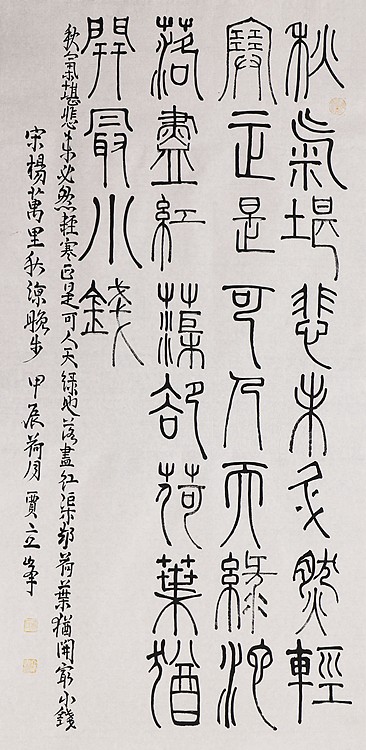 秋氣堪悲未必然輕
寒正是可人天綠池
落盡紅蕖卻荷葉猶
開最小錢
秋氣堪悲未必然輕寒正是可人天綠池落盡紅渠却荷葉猶開最小錢
宋楊萬里秋涼晚步 甲辰荷月 賈立峯